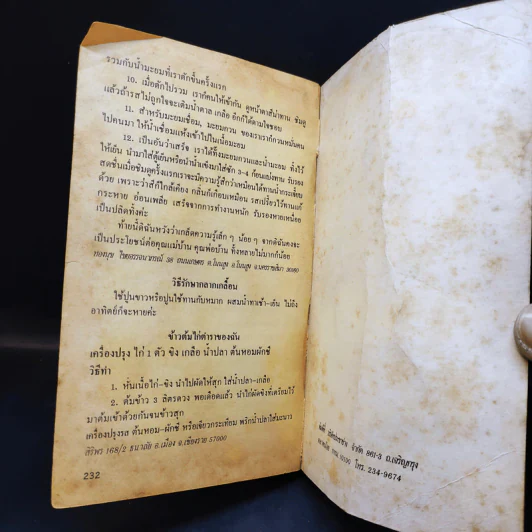 รวมกับน้ำมะยมที่เราตักขึ้นครั้งแรก
10. เมื่อตักไปรวม เราก็คนให้เข้ากัน ดูหน้าตาสีน่าทาน ชิมดู
แล้วถ้ารสไม่ถูกใจจะเติมน้ำตาล เกลือ อีกก็ได้ตามใจชอบ
11. สำหรับมะยมเชื่อม, มะยมกวน ของเราเราก็กวนหมั่นคน
ไปคนมา ให้น้ำเชื่อมแห้งเข้าไปในเนื้อมะยม
12. เป็นอันว่าเสร็จ เราได้ทั้งมะยมกวนและน้ำมะยม ทั้งไว้
ให้เย็น นำมาใส่ตู้เย็นหรือนำน้ำแข็งมาใส่ซัก 3-4 ก้อนแบ่งทาน รับรอง
สดชื่นเมื่อชิมดูครั้งแรกเราจะมีความรู้สึกว่าเหมือนได้ทานน้ำกระเจี๊ยบ
ด้วย เพราะว่าสีก็ใกล้เคียง กลิ่นก็เกือบเหมือน รสเปรี้ยวไว้ทานแก้
กระหาย อ่อนเพลีย เสร็จจากการทำงานหนัก รับรองหายเหนื่อย
เป็นปลิดทิ้งค่ะ
ท้ายนี้ดิฉันหวังว่าเกล็ดความรู้เล็ก ๆ น้อย ๆ จากดิฉันคงจะ
เป็นประโยชน์ต่อคุณแม่บ้าน คุณพ่อบ้าน ทั้งหลายไม่มากก็น้อย
38 อ.โนนสูง จ.นครราชสีมา
วิธีรักษากลากเกลื้อน
ใช้ปูนขาวหรือปูนใช้ทานกับหมาก ผสมน้ำทาเช้า-เย็น ไม่ถึง
อาทิตย์ก็จะหายค่ะ
ข้าวต้มไก่ตำราของฉัน
เครื่องปรุง ไก่ 1 ตัว ขิง เกลือ น้ำปลา ต้นหอมผักชี
วิธีทำ
1. หั่นเนื้อไก่-ขิง นำไปผัดให้สุก ใส่น้ำปลา-เกลือ
2. ต้มข้าว 3 ลิตรตวง พอเดือดแล้ว นำไก่ผัดขิงที่เตรียมไว้
มาต้มเข้าด้วยกันจนข้าวสุก
เครื่องปรุงรส ต้นหอม-ผักชี หรือเจียวกระเทียม พริกน้ำปลาใส่มะนาว
ศิริพร 168/2 ธนาลัย อ.เมือง จ.เชียงราย 57000
232
จำกัด 861-3 ถ.เจริญกรุง
โทร. 234-9674